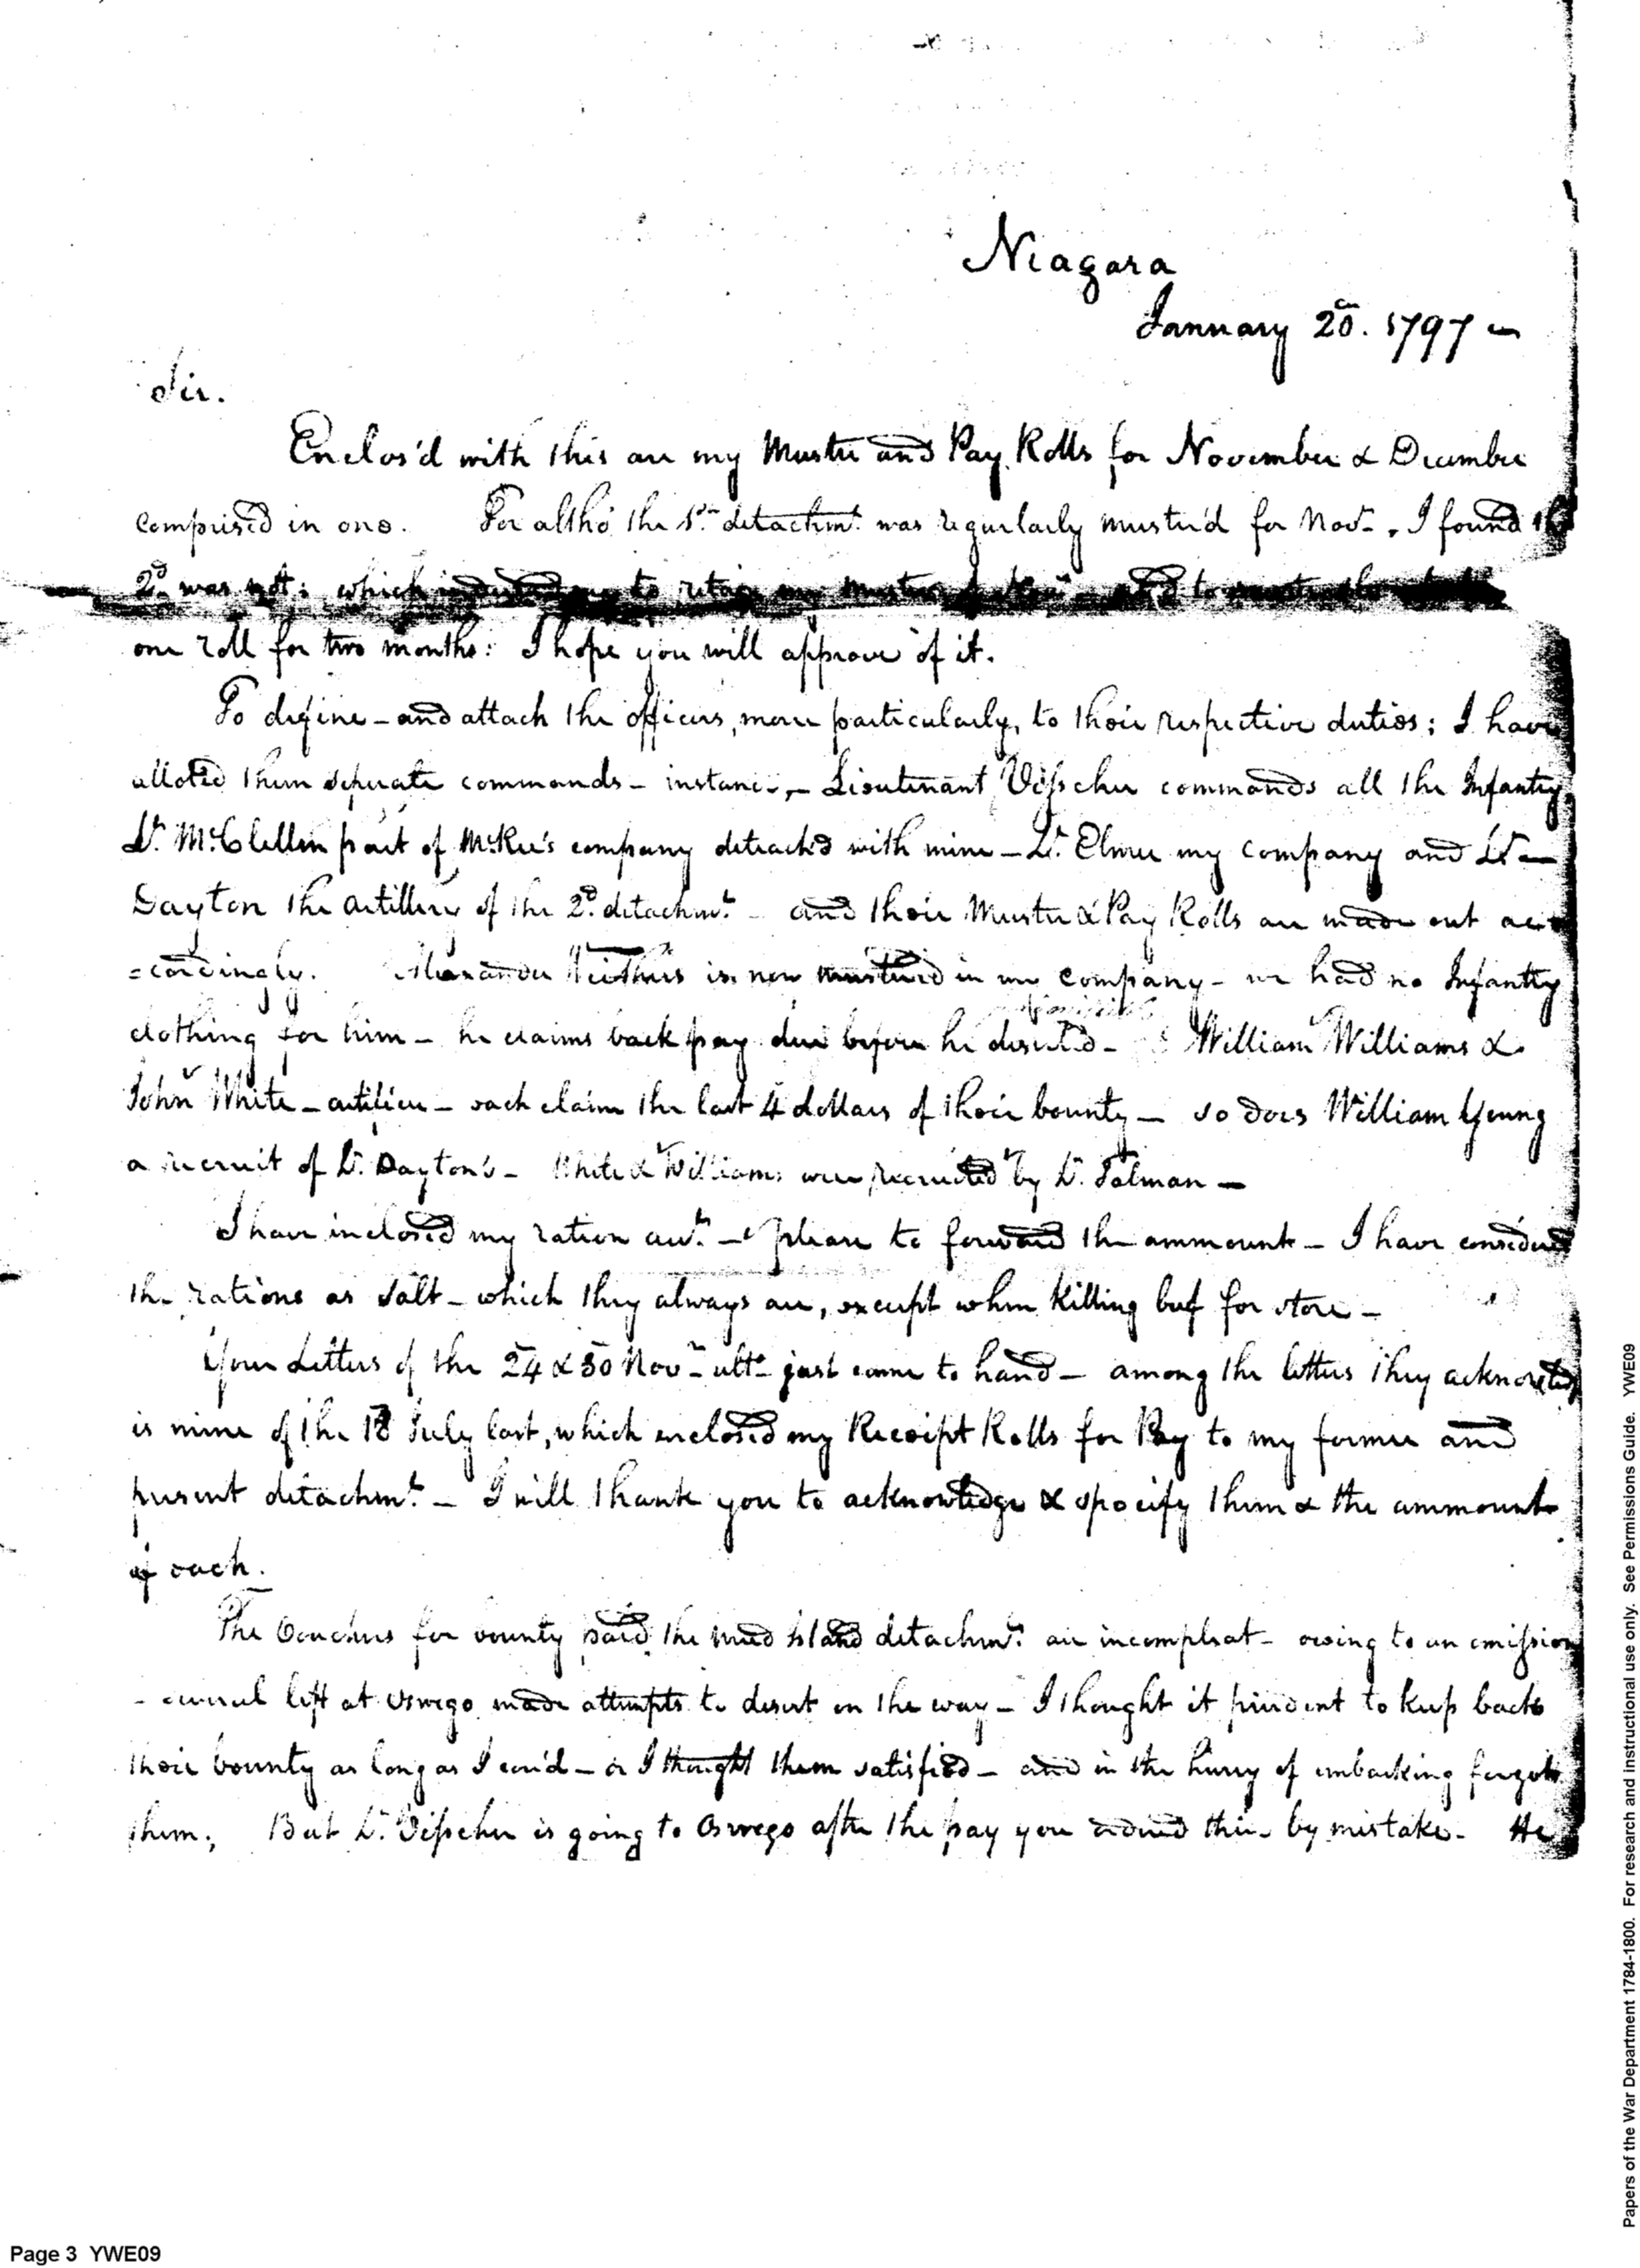 Niagara
January 20. 1797
Sir.
Enclos'd with this are my Muster and Pay Rolls for November & December
comprised in one. For altho' the 1st detachmt. was regurlarly muster'd for Novr. I found the
2d. was not: which induced me to retain my muster and to
one roll for two months: I hope you will approve of it.
To define - and attach the officers, more particularly, to their respective duties; I have
alloted them seperate commands - instance, - Lieutenant Visscher commands all the Infantry
Lt. McClellen part of McKee's company detach'd with mine - Lt. Elmer my company and Lt
Dayton the artillery of the 2d. detachmt. - and their Muster & Pay Rolls are made out ac
=cordingly. Alexander is now mustered in my company - we had no Infantry
clothing for him - he claims back pay due before he deserted - William Williams &
John White - artificer - each claim the last 4 dollars of their bounty - so does William Young
a recruit of Lt. Dayton's - White & Williams were recruited by Lt. Tolman -
I have inclosed my ration acct. - please to forward the ammount - I have considered
the rations as salt - which they always are, except when killing beef for store -
Your Letters of the 24 & 30 Novr. ulto. just came to hand - among the letters they acknowledge
is mine of the 18 July last, which enclosed my Receipt Rolls for Pay to my former and
present detachmt. - I will thank you to acknowledge & specify them & the ammount
of each.
The Vouchers for bounty paid the mud Island detachmt. are incompleat - owing to an omission
- several left at Oswego made attempts to desert on the way - I thought it prudent to keep back
their bounty as long as I cou'd - or I thought them satisfied - and in the hurry of embarking forgot
them; But Lt. Visscher is going to Oswego after the pay you there by mistake. He
Page 3 YWE09
Papers of the War Department 1784-1800. For research and instructional use only. See Permissions Guide. YWE09